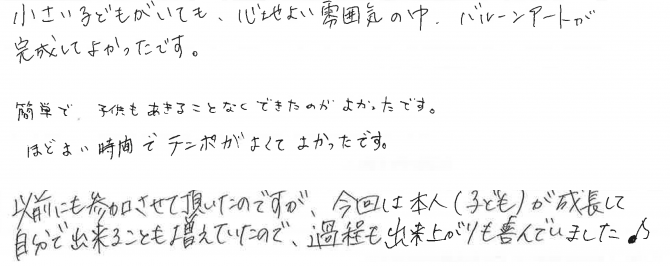 小さい子どもがいても、心地よい雰囲気の中、バルーンアートが
完成してよかったです。
簡単で、子供もあきることなくできたのがよかったです。
ほどよい時間でテンポがよくてよかったです。
以前にも参加させて頂いたのですが、今回は本人(子ども)が成長して
自分で出来ることも増えていたので、過程も出来上がりも喜んでいました♪